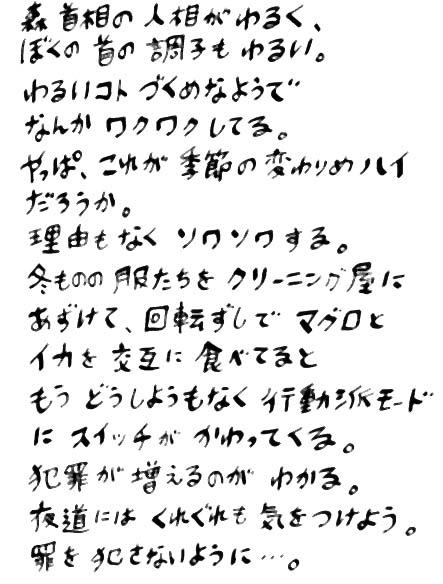 森首相の人相がわるく、
ぼくの首の調子もわるい。
わるいコトづくめなようで
なんかワクワクしてる。
やっぱ、これが季節の変わりめハイ
だろうか。
理由もなくソワソワする。
冬ものの服たちをクリーニング屋に
あずけて、回転ずしでマグロと
イカを交互に食べてると
もうどうしようもなく行動派モード
にスイッチがかわってくる。
犯罪が増えるのがわかる。
夜道にはくれぐれも気をつけよう。
罪を犯さないように…。